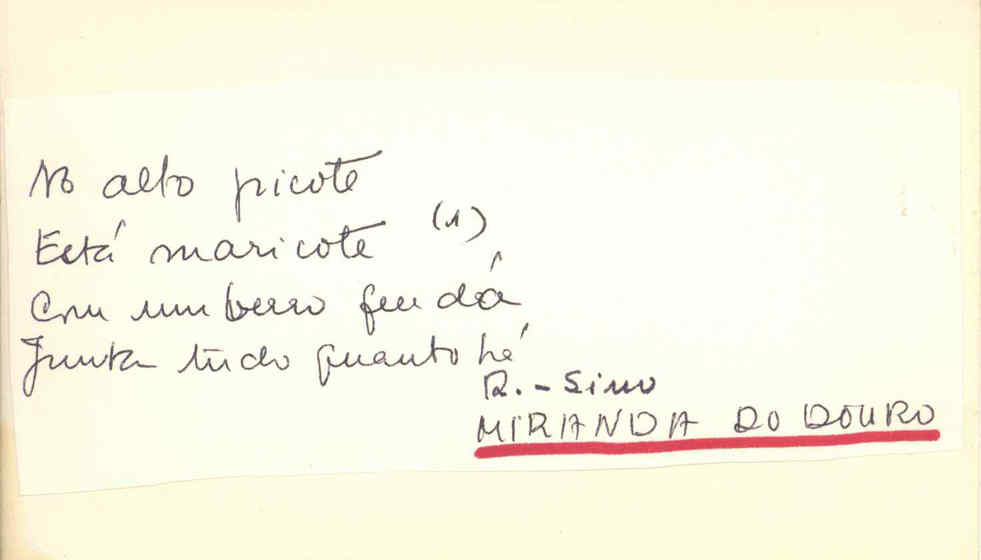 No alto picote
Está maricote (1)
Com um berro que dá
Junta tudo quanto há
R. - Sino
MIRANDA DO DOURO